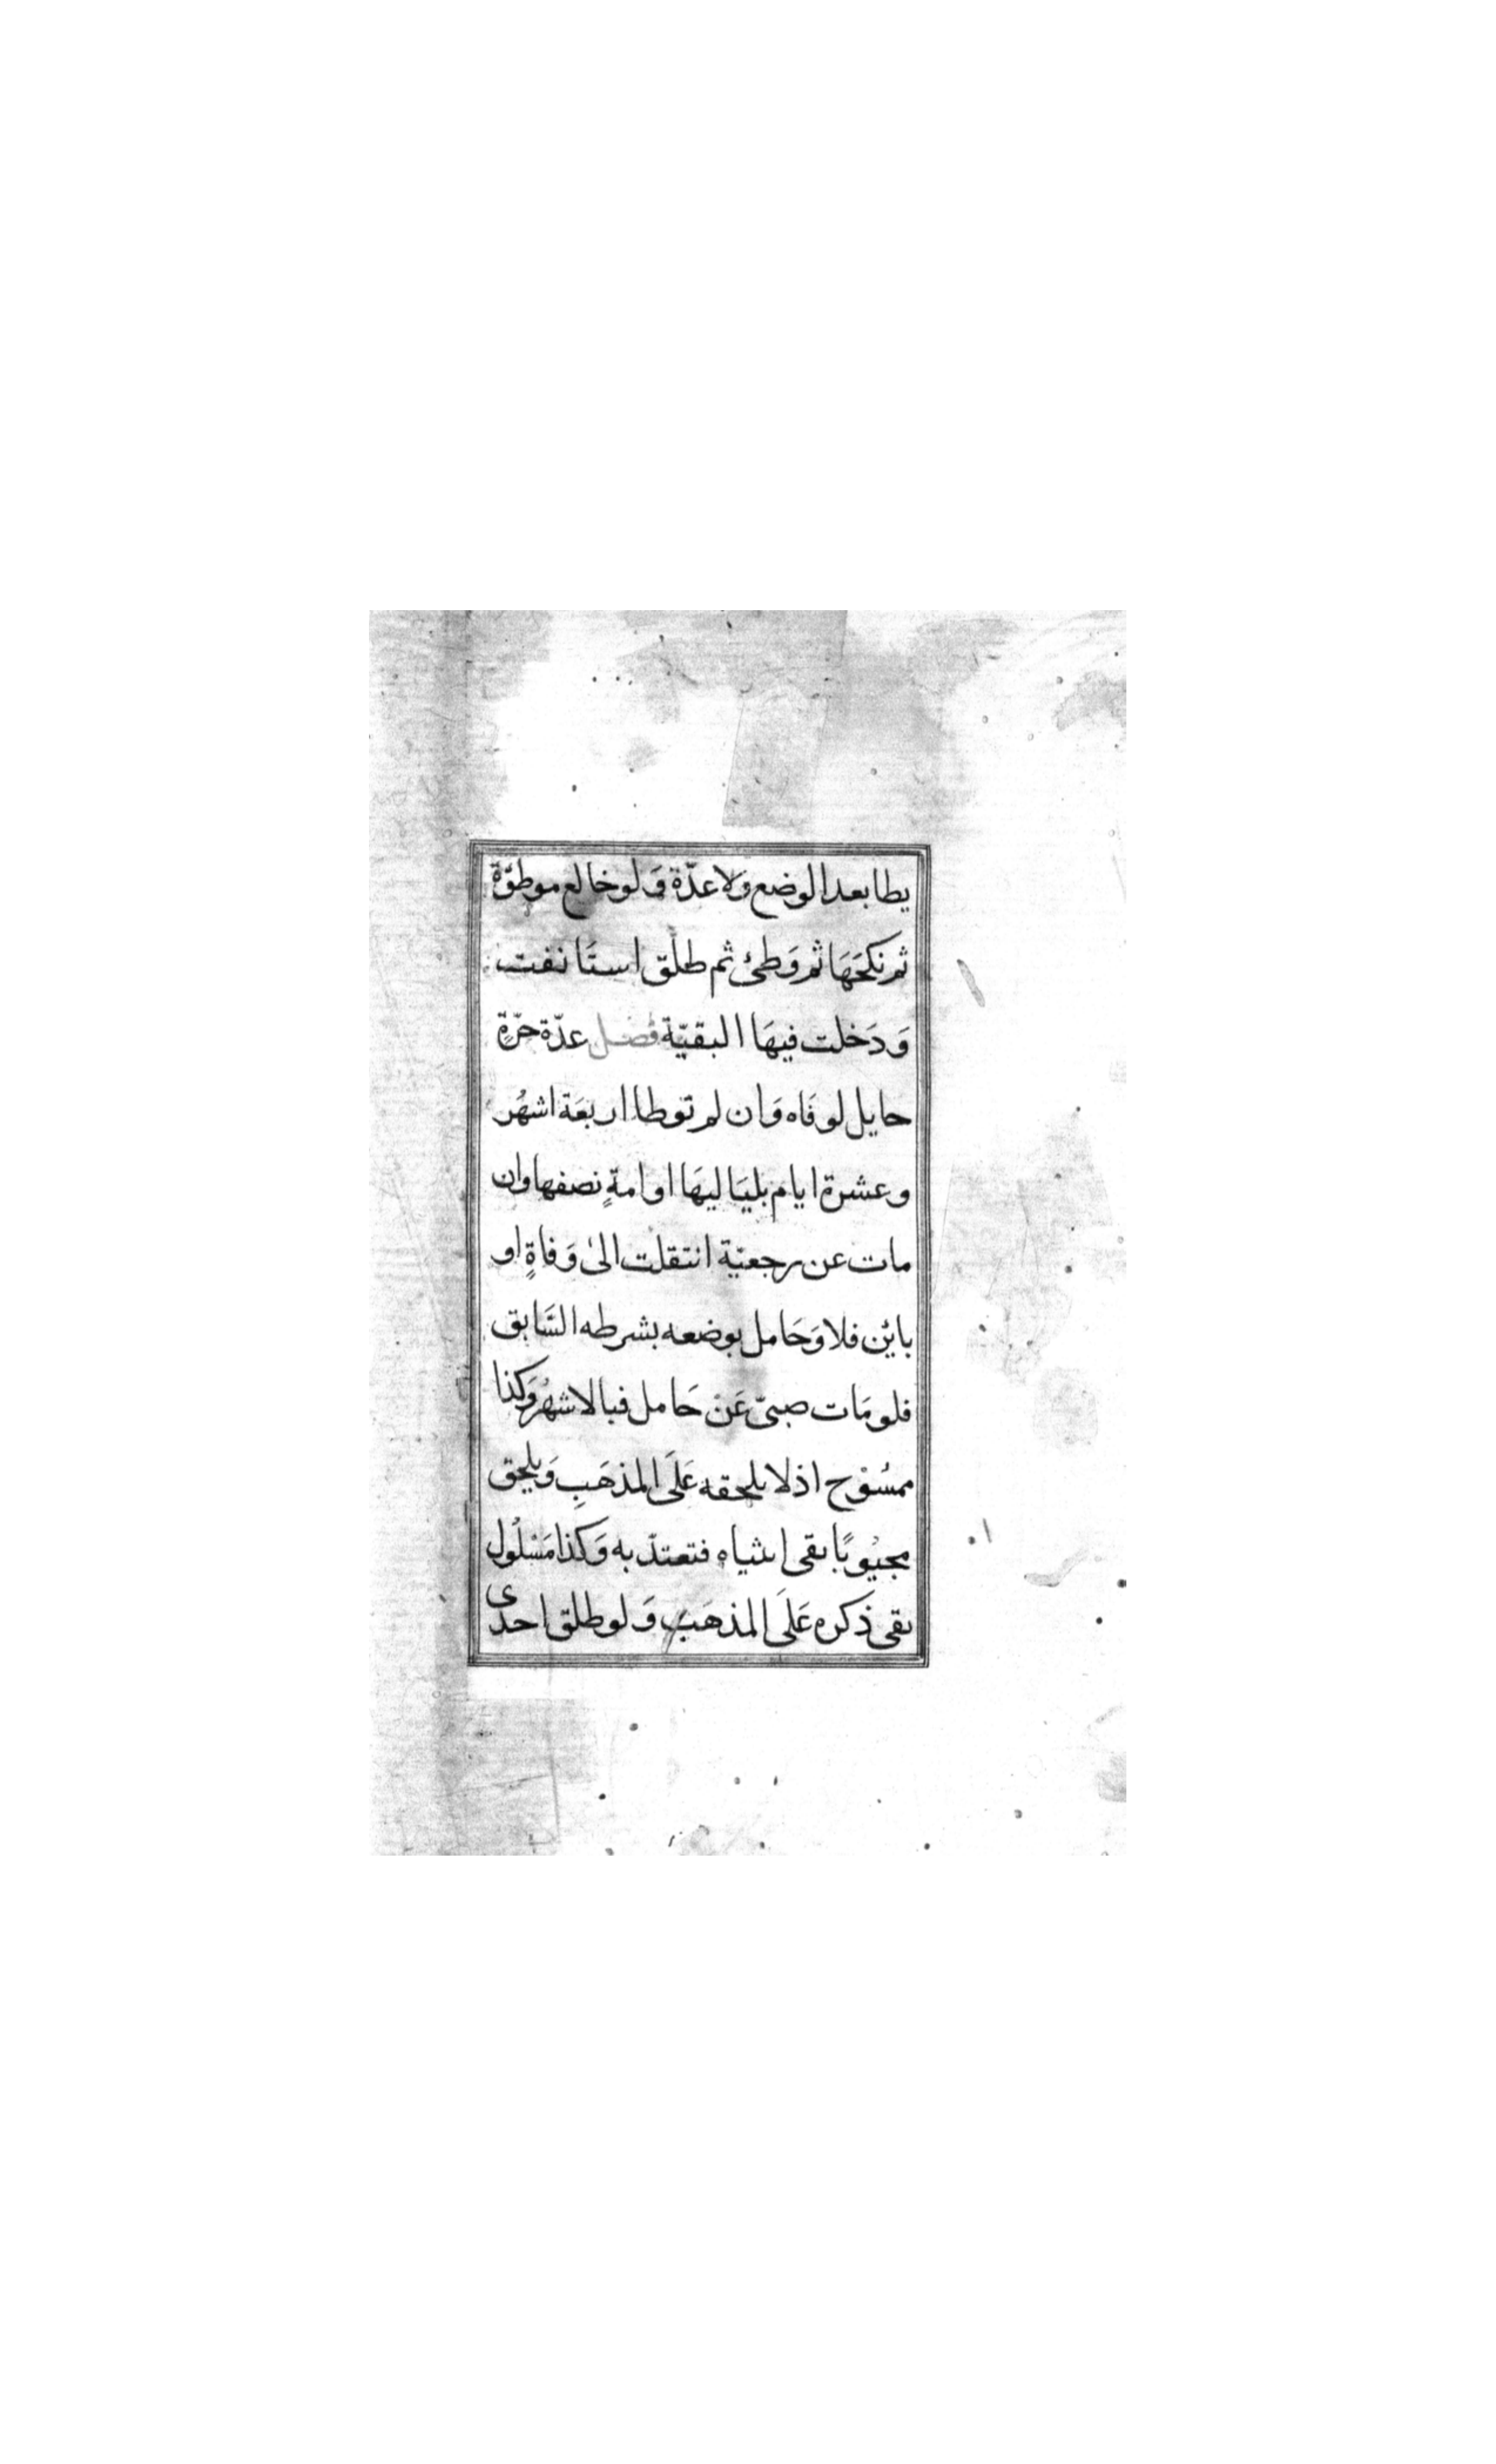 يطا بعد الوضع وَلا عدّة وَلو خالع موطوّة
ثم نكحَهَا ثم وَطئ ثم طلّق استَانفت
وَدَخلت فيهَا البقيّة فصل عدّة حرّةٍ
حايل لوفَاه وَان لم توطا اربعَة اشهُر
وعشرة ايام بليَاليهَا او امةٍ نصفها وان
مات عن رجعيّة انتقلت الىٰ وَفاةٍ او
بائن فلا وَحَامل بوضعه بشرطه السَّابق
فلو مَات صبىّ عَنْ حَامل فبالاشهُر وَكذا
ممسُوْح اذ لا يلحقه عَلَى المذهَبِ وَيلحق
مجبُوبًا بقى انثياه فتعتدّ به وَكذا مَسْلُول
بقى ذكره عَلَى المذهَبِ وَلو طلق احدى